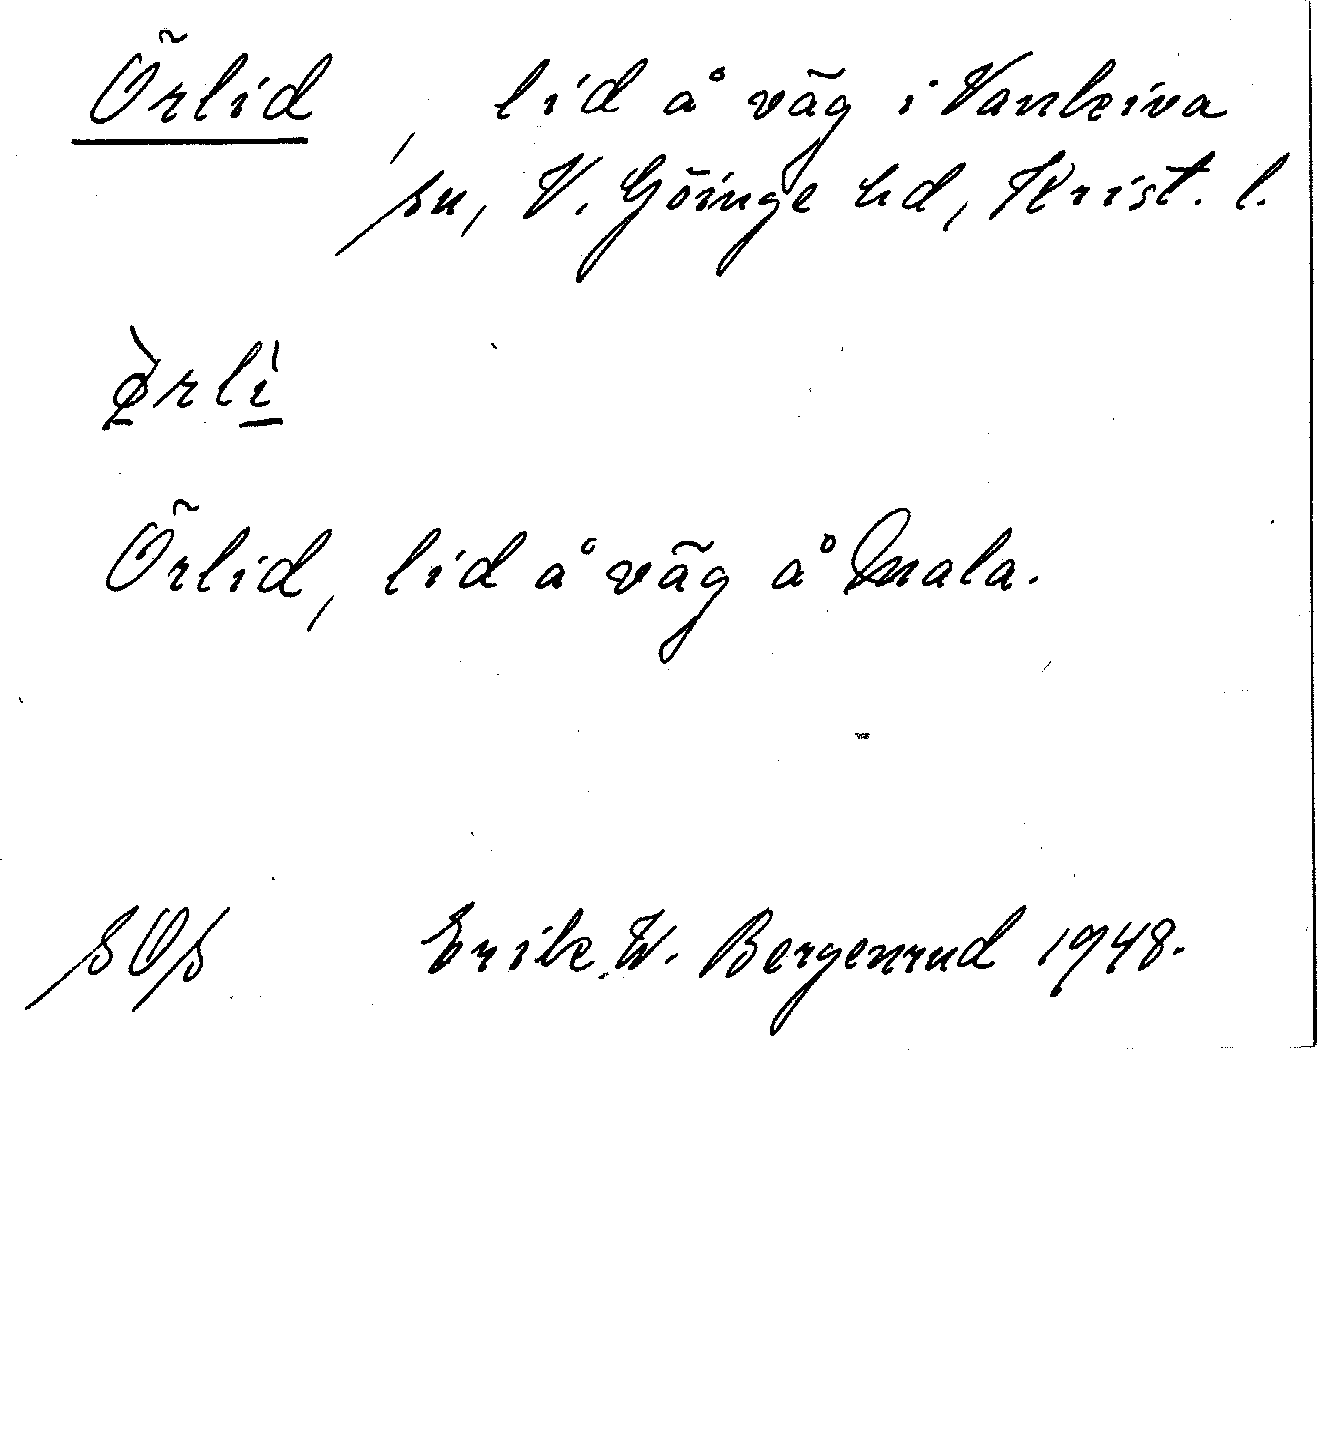 Örlid, lid å väg i Vankiva
sn, V. Göinge hd, Krist. l.
ø̀rlì
Örlid, lid å väg å Mala.
SOS Erik W. Bergenrud 1948.